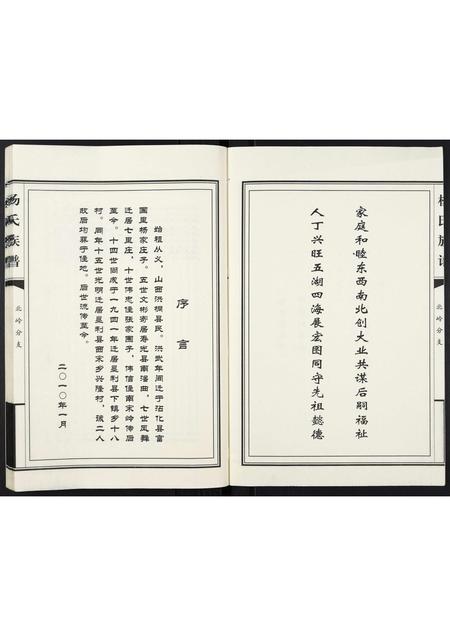 杨氏族谱
北岭分支
家庭和睦东西南北创大业共谋后嗣福祉
人丁兴旺五湖四海展宏图同守先祖懿德
序言
始祖从义，山西洪桐县民。洪武年间迁于沾化县富
国里杨家庄子。五世文彬寄居寿光县南潘曲，七世凤舞
迁居七里庄，十世伟忠住张家围子，伟信住南宋岭传后
至今。十四世尚成于一九四一年迁居垦利县下镇乡十八
村。同年十五世光明迁居垦利县西宋乡兴隆村，二人
故后均葬于住地。后世流传至今。
二〇一〇年一月
杨氏族谱
北岭分支